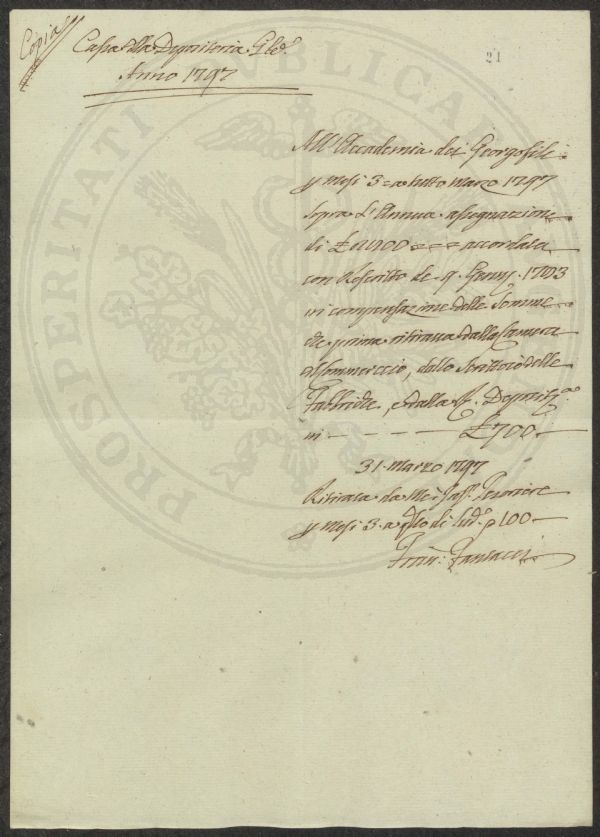 Copia
Cassa della Depositeria Gle.
Anno 1797
21
All' Accademia dei Georgofili
p Mesi 3 a tutto Marzo 1797
sopra l'Annua assegnazione
di £ accordata
con Rescritto de 9. 1793
in compensazione delle Somme
che prima ritirava dalla Camera
di Commercio, dallo Scrittoio delle
Fabbriche, e dalla
in - - - - - £ 700.-
31. Marzo 1797
Ritirata da Me Cassiere
p Mesi 3. a di
Fantacci
PROSPERITATI PUBLICAE